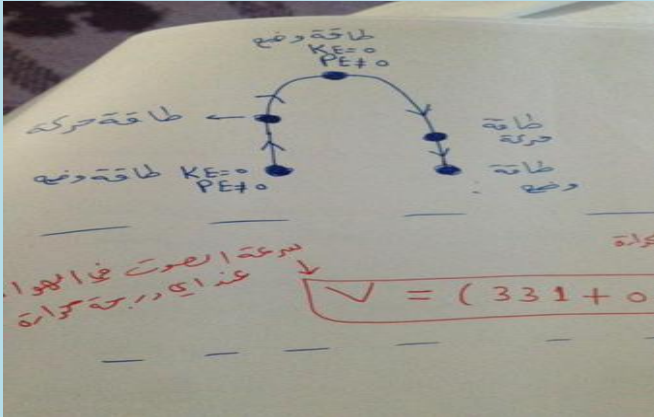 طاقة وضع
KE=0
PE≠0
طاقة حركة
طاقة
حركة
طاقة وضع KE=0
PE≠0
طاقة
وضع
سرعة الصوت في الهوا
عند اي درجة حرارة
V = (331+0